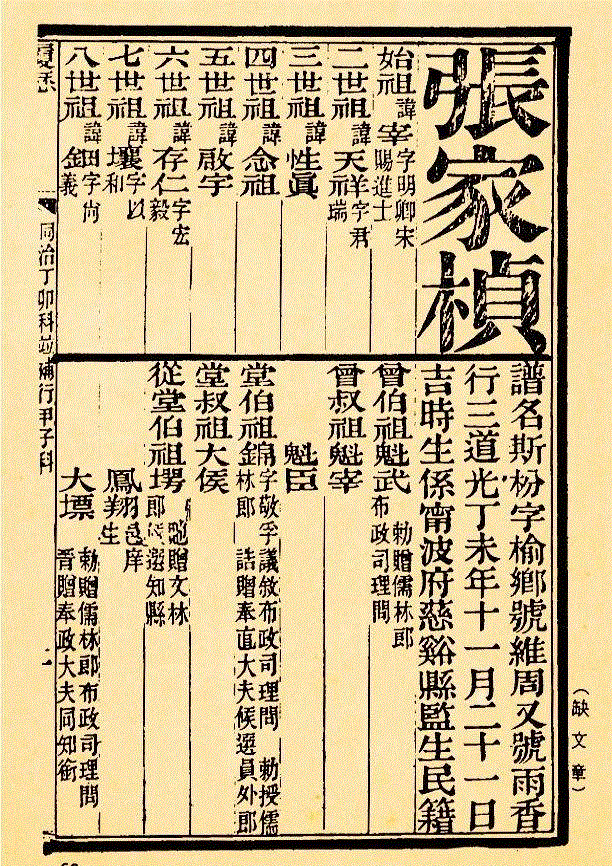 張家楨
譜名斯枌字榆鄉號維周又號雨香
行三道光丁未年十一月二十一日
吉時生係甯波府慈谿縣監生民籍
始祖諱宰字明卿宋賜進士
二世祖諱天祥字君瑞
三世祖諱性眞
四世祖諱念祖
五世祖諱啟宇
六世祖諱存仁字宏毅
七世祖諱壤字以和
八世祖諱鈿字尚義
曾伯祖魁武勅贈儒林郎布政司理問
曾叔祖魁宰
魁臣
堂伯祖錦字敬孚議敘布政司理問勅授儒林郎誥贈奉直大夫候選員外郎
堂叔祖大侯
從堂伯祖塄貤贈文林郎候選知縣
鳳翔邑庠生
大墂勅贈儒林郎布政司理問晉贈奉政大夫同知銜
履歷
同治丁卯科並補行甲子科
一
（缺文章）